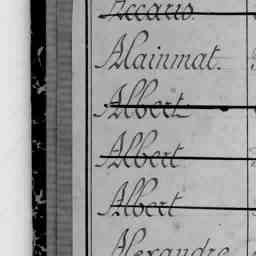 Accario.
Alainmat.
Albert
Albert
Albert
Alexandre